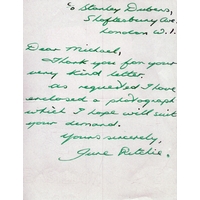 c/o Stanley Dubens,
Shaftesbury Ave.
London W.1.
Dear Michael,
Thank you for your
very kind letter.
As requested I have
enclosed a photograph
which I hope will suit
your demand.
Yours sincerely,
June Ritchie.